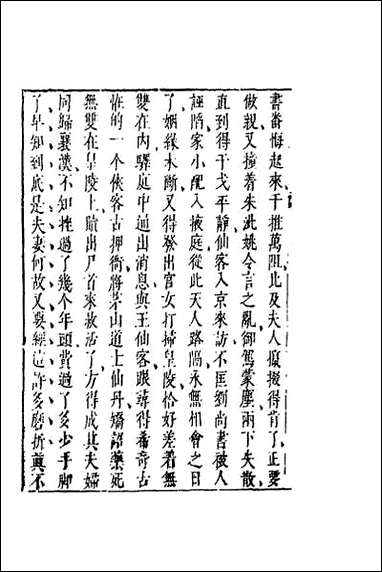 書番悔起來千推萬阻比及夫人攛掇得肯了正要
做親又撞着朱泚姚令言之亂御駕蒙塵兩下失散
直到得干戈平靜仙客入京來訪不匡劉尚書被人
誣陷家小配入掖庭從此天人路隔永無相會之日
了姻緣未斷又得發出宮女打掃皇陵恰好差着無
雙在內驛庭中通出消息與王仙客跟尋得希奇古
怪的一个俠客古押衙將茅山道士仙丹矯詔藥死
無雙在皇陵上贖出尸首來救活了方得成其夫婦
同歸襄漢不知挫過了幾个年頭費過了多少手脚
了早知到底是夫妻何故又要經這許多磨折眞不